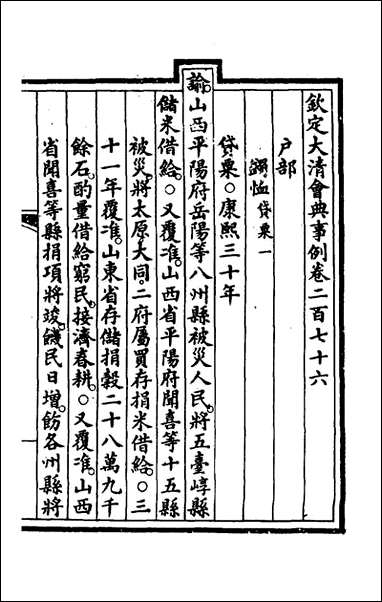 欽定大清會典事例卷二百七十六
户部
蠲恤貸粟一
貸粟○康熙三十年
諭。山西平陽府岳陽等八州縣被災人民。將五臺崞縣
儲米借給。○又覆准。山西省平陽府聞喜等十五縣
被災。將太原大同。二府屬買存捐米借給。○三
十一年覆准。山東省存儲捐穀二十八萬九千
餘石。酌量借給窮民。接濟春耕。○又覆准。山西
省聞喜等縣捐項將竣。饑民日增。飭各州縣將